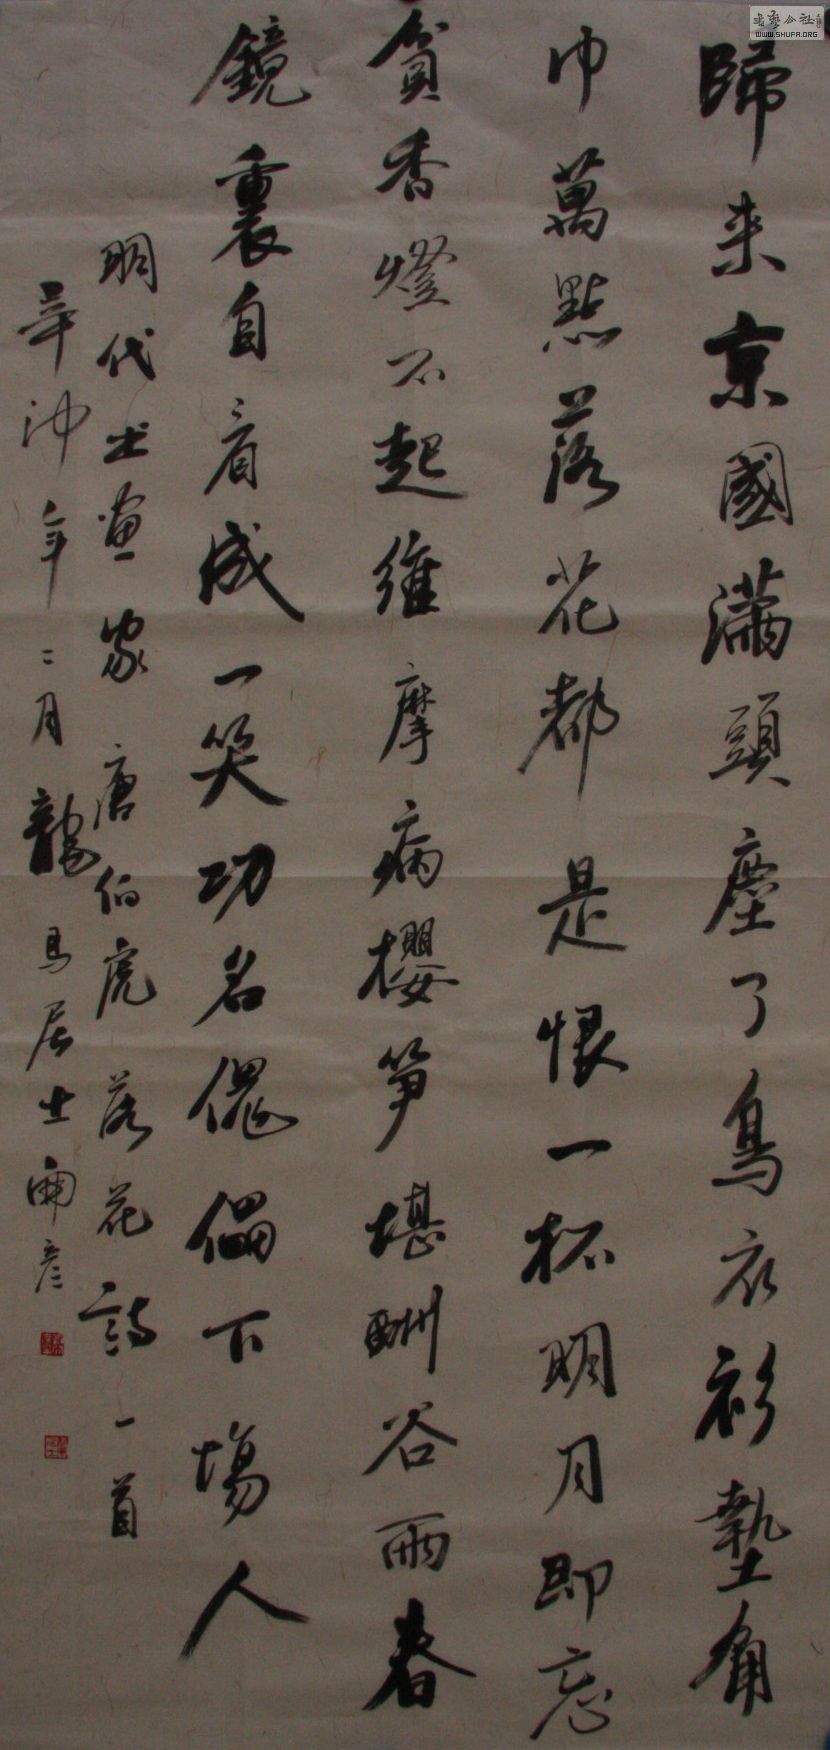 歸来京國滿頭塵了鳥衣衫墊角
巾萬點落花都是恨一杯明月即忘
貧香燈不起維摩病櫻筍堪酬谷雨春
鏡裏自看成一笑功名傀儡下場人
明代书畫家唐伯虎落花詩一首
年二月龍馬居士彦
WWW.SHUFA.ORG